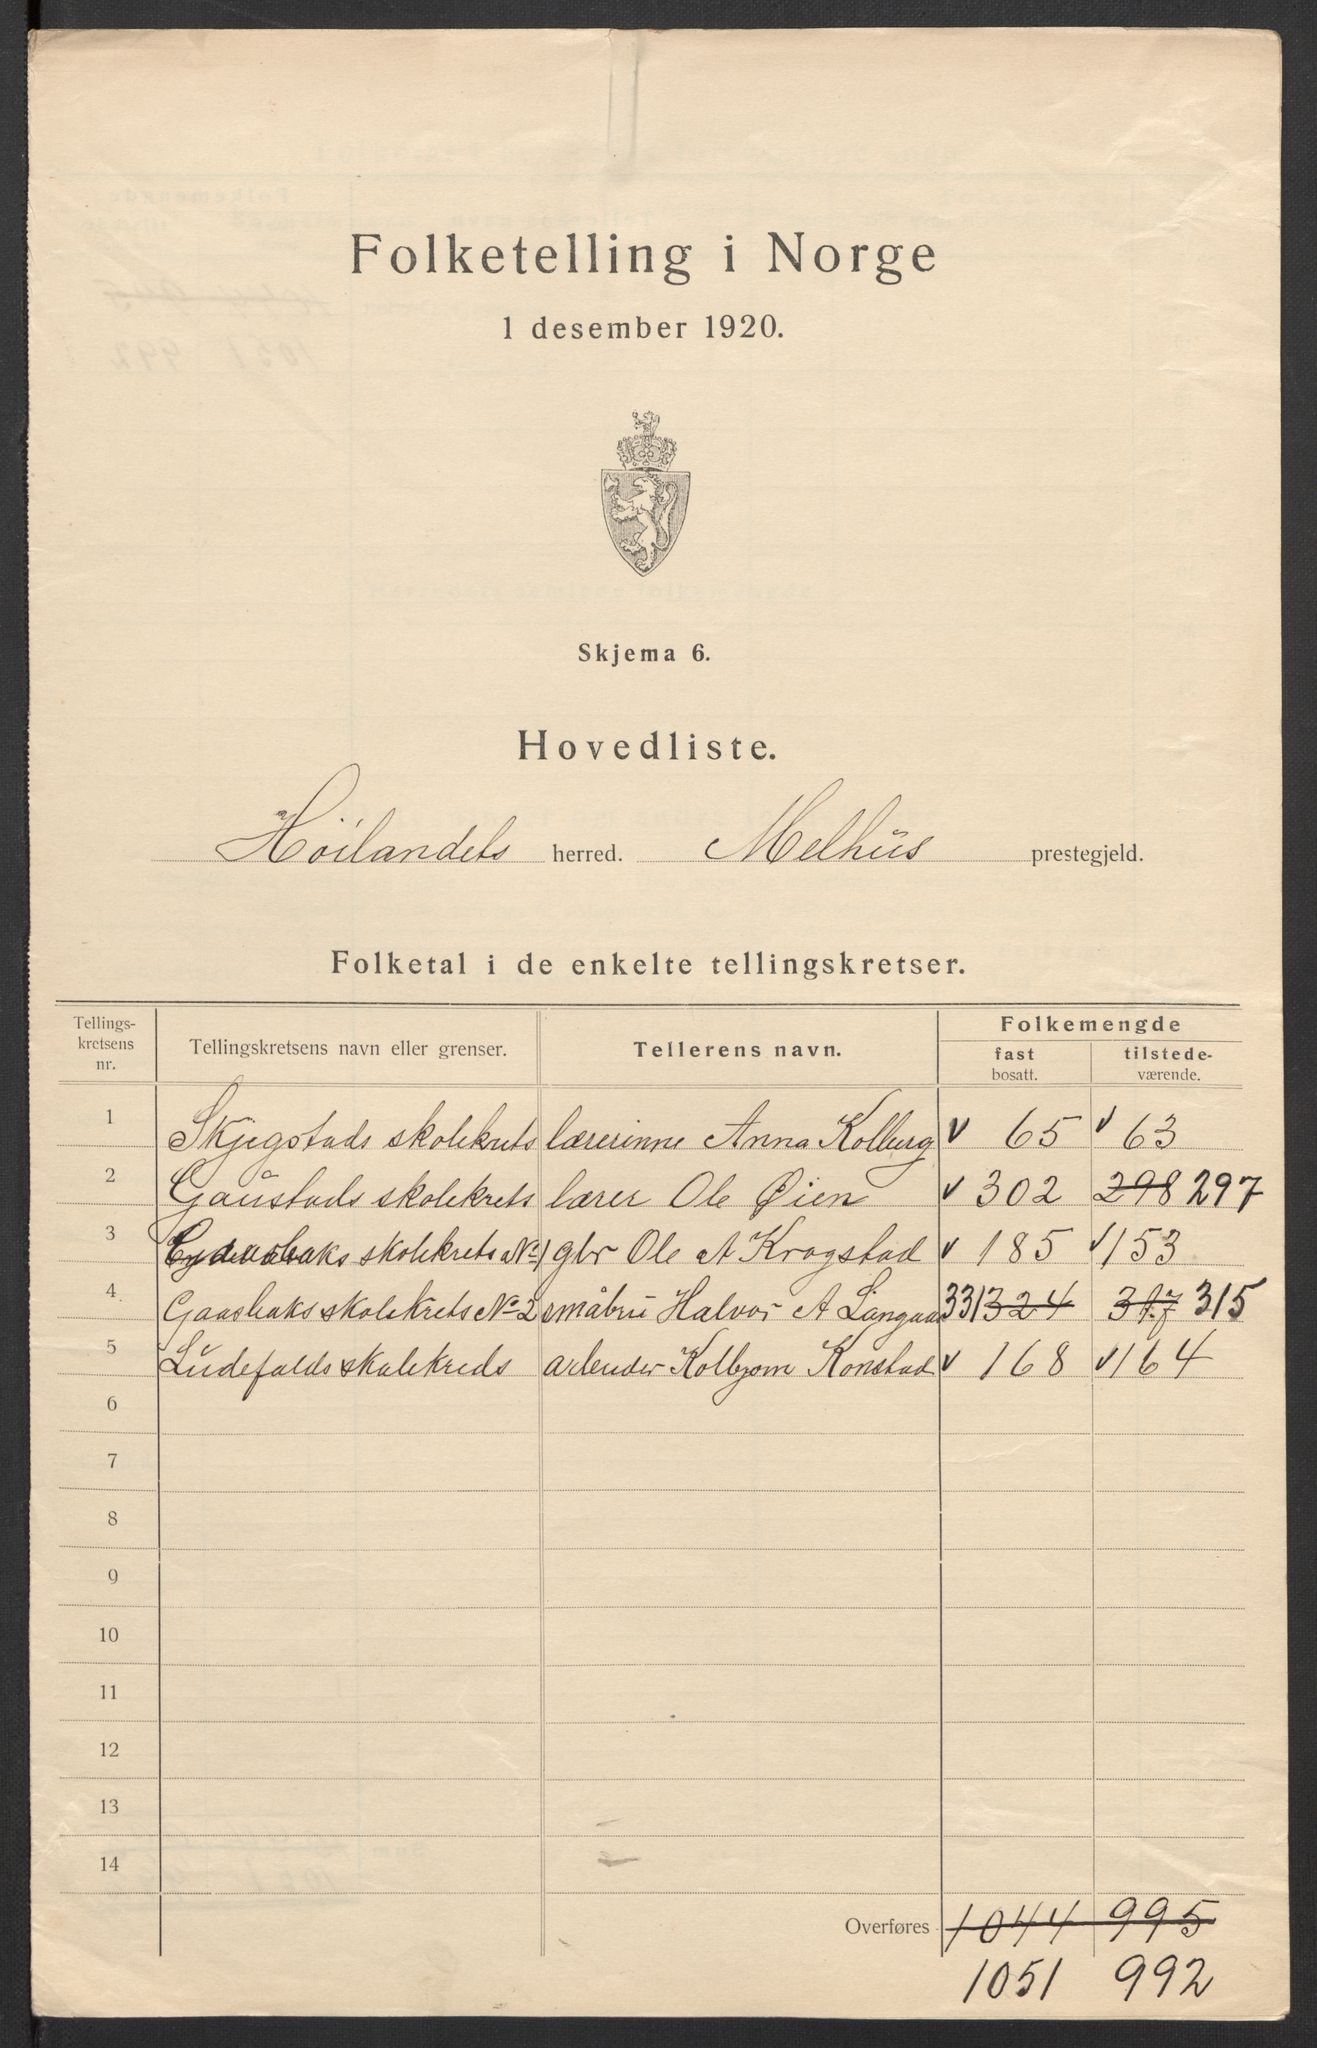 Folketelling i Norge
1 desember 1920.
Skjema 6.
Hovedliste.
Höilandets herred. Melhus prestegjeld.
Folketal i de enkelte tellingskretser.
Tellings-kretsens nr. Tellingskretsens navn eller grenser. Tellerens navn. Folkemengde fast bosatt. tilstede-værende.
1 Skjegstads skolekrets lærerinne Anna Kolberg v 65 v 63
2 Gaustads skolekrets lærer Ole Øien v 302 298 297
3 skolekrets No 1 gbr Ole A Krogstad v 185 v 153
4 Gaasbaks skolekrets No 2 småbru Halvor A 331 324 317 315
5 skolekreds arbeider Kolbjørn Konstad v 168 v 164
6
7
8
9
10
11
12
13
14
Overføres 1044 995
1051 992